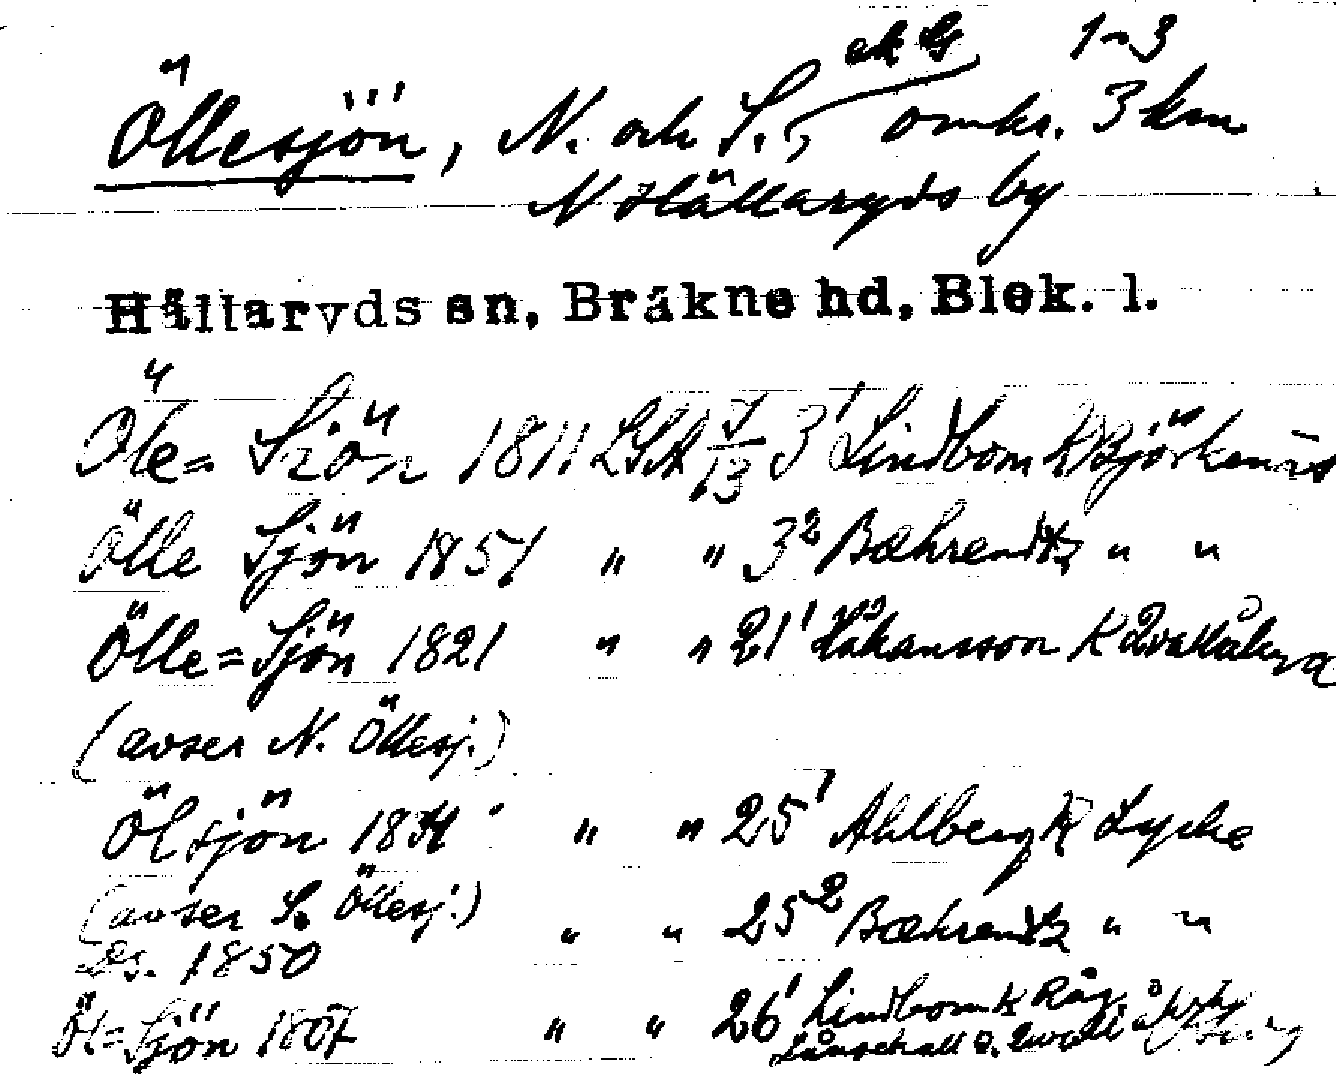 ek G 1-3
Öllesjön, N. och S., omkr. 3 km
N Hällaryds by
Hällaryds sn, Bräkne hd, Blek. l.
Öle= Siön 1811 LSA J/13 3¹ Lindbom K Björkenäs
Ölle Sjön 1851 " " 3² Bæhrendtz " "
Ölle=Sjön 1821 " " 21¹ Håkansson K Tvatåkra
(avser N. Öllesj.)
Ölsjön 1834 " " 25¹ Ahlberg K Lycke
(avser S. Öllesj.)
Ds. 1850 " " 25² Bæhrendtz " "
Öl=Sjön 1807 " " 26¹ Lindbom K